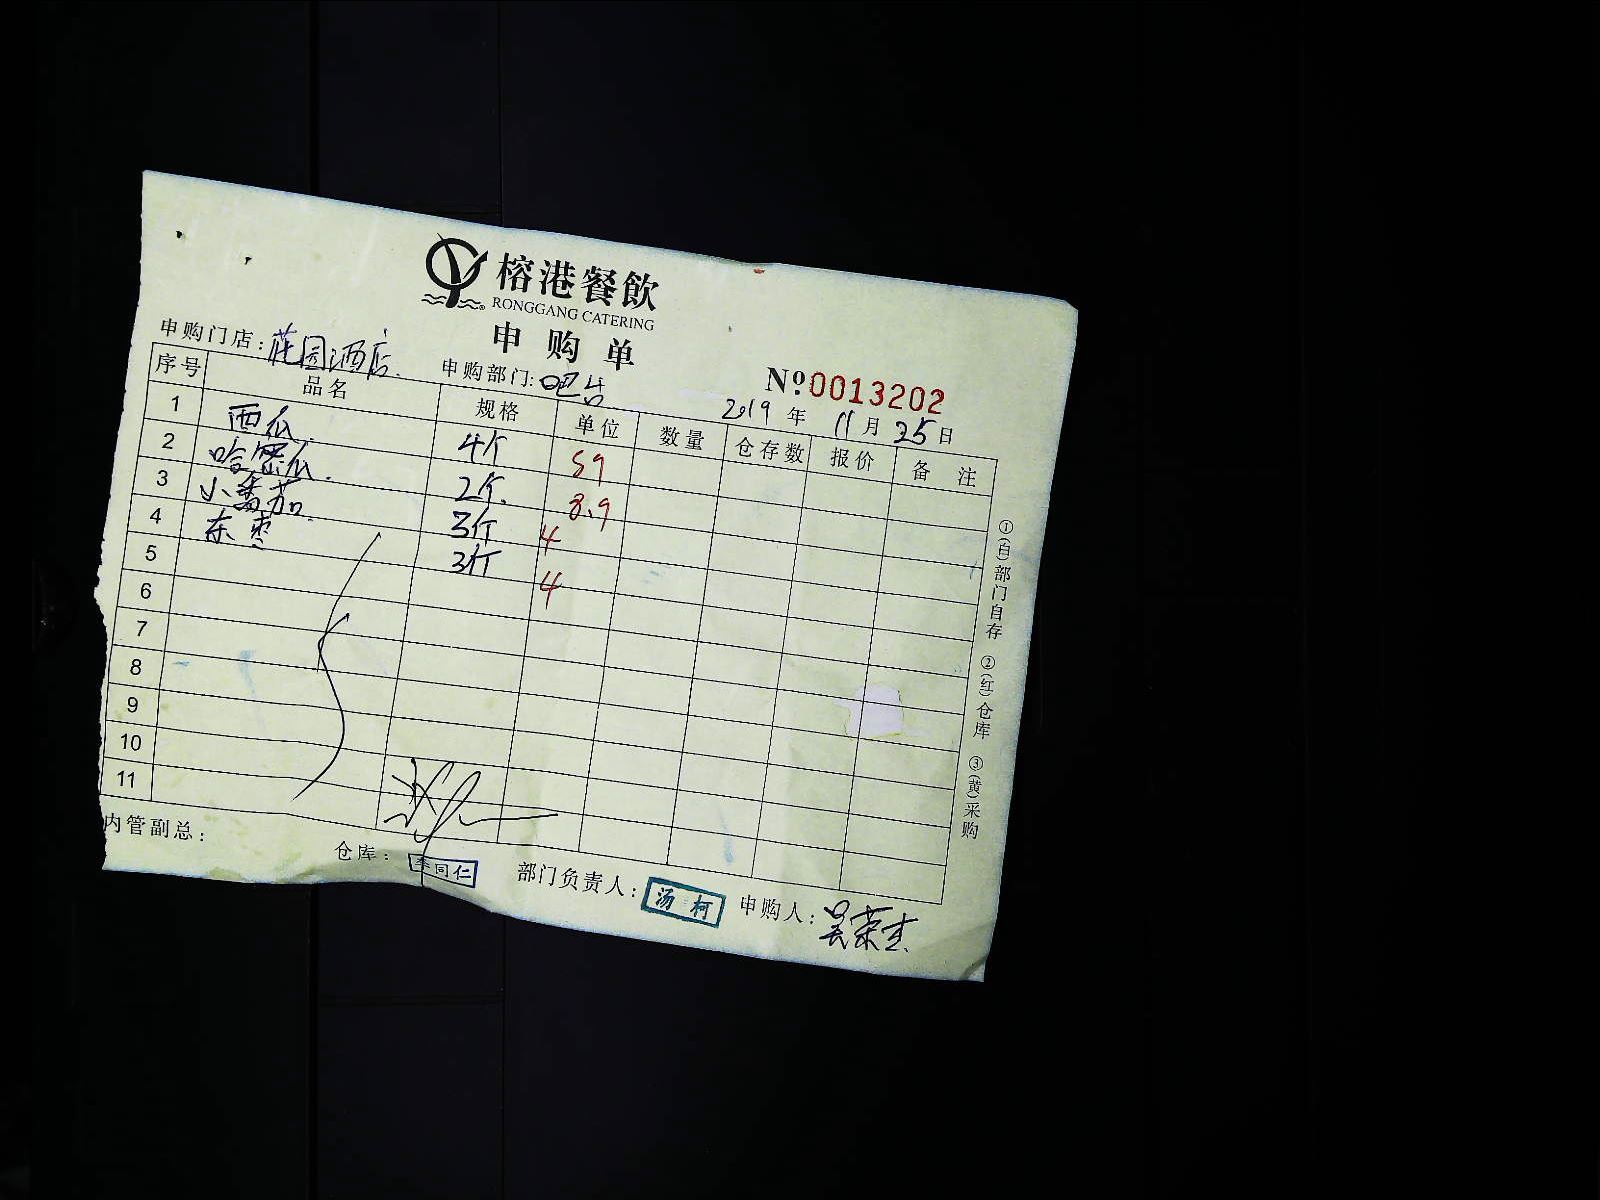 榕港餐飲
RONGGANG CATERING
申购单
申购门店:花园酒店 申购部门:吧台 Nº:0013202
2019年 11月25日
序号 品名 规格 单位 数量 仓存数 报价 备 注
1 西瓜 4个 59
2 哈密瓜 2个 8.9
3 小番茄 3斤 4
4 东枣 3斤 4
5
6
7
8
9
10
11
①(白)部门自存 ②(红)仓库 ③(黄)采购
内管副总: 仓库: 李同仁 部门负责人:汤柯 申购人:吴荣杰